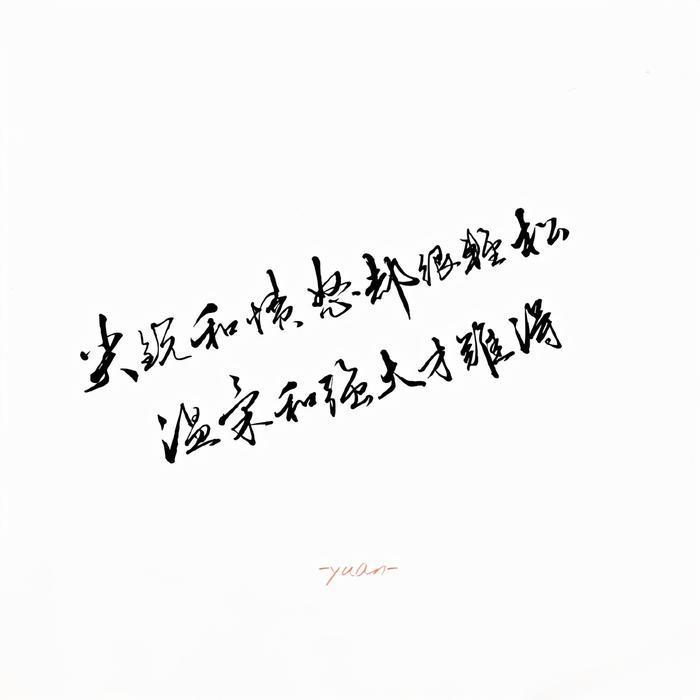 尖锐和愤怒都很轻松
温柔和强大才难得
-yuan-